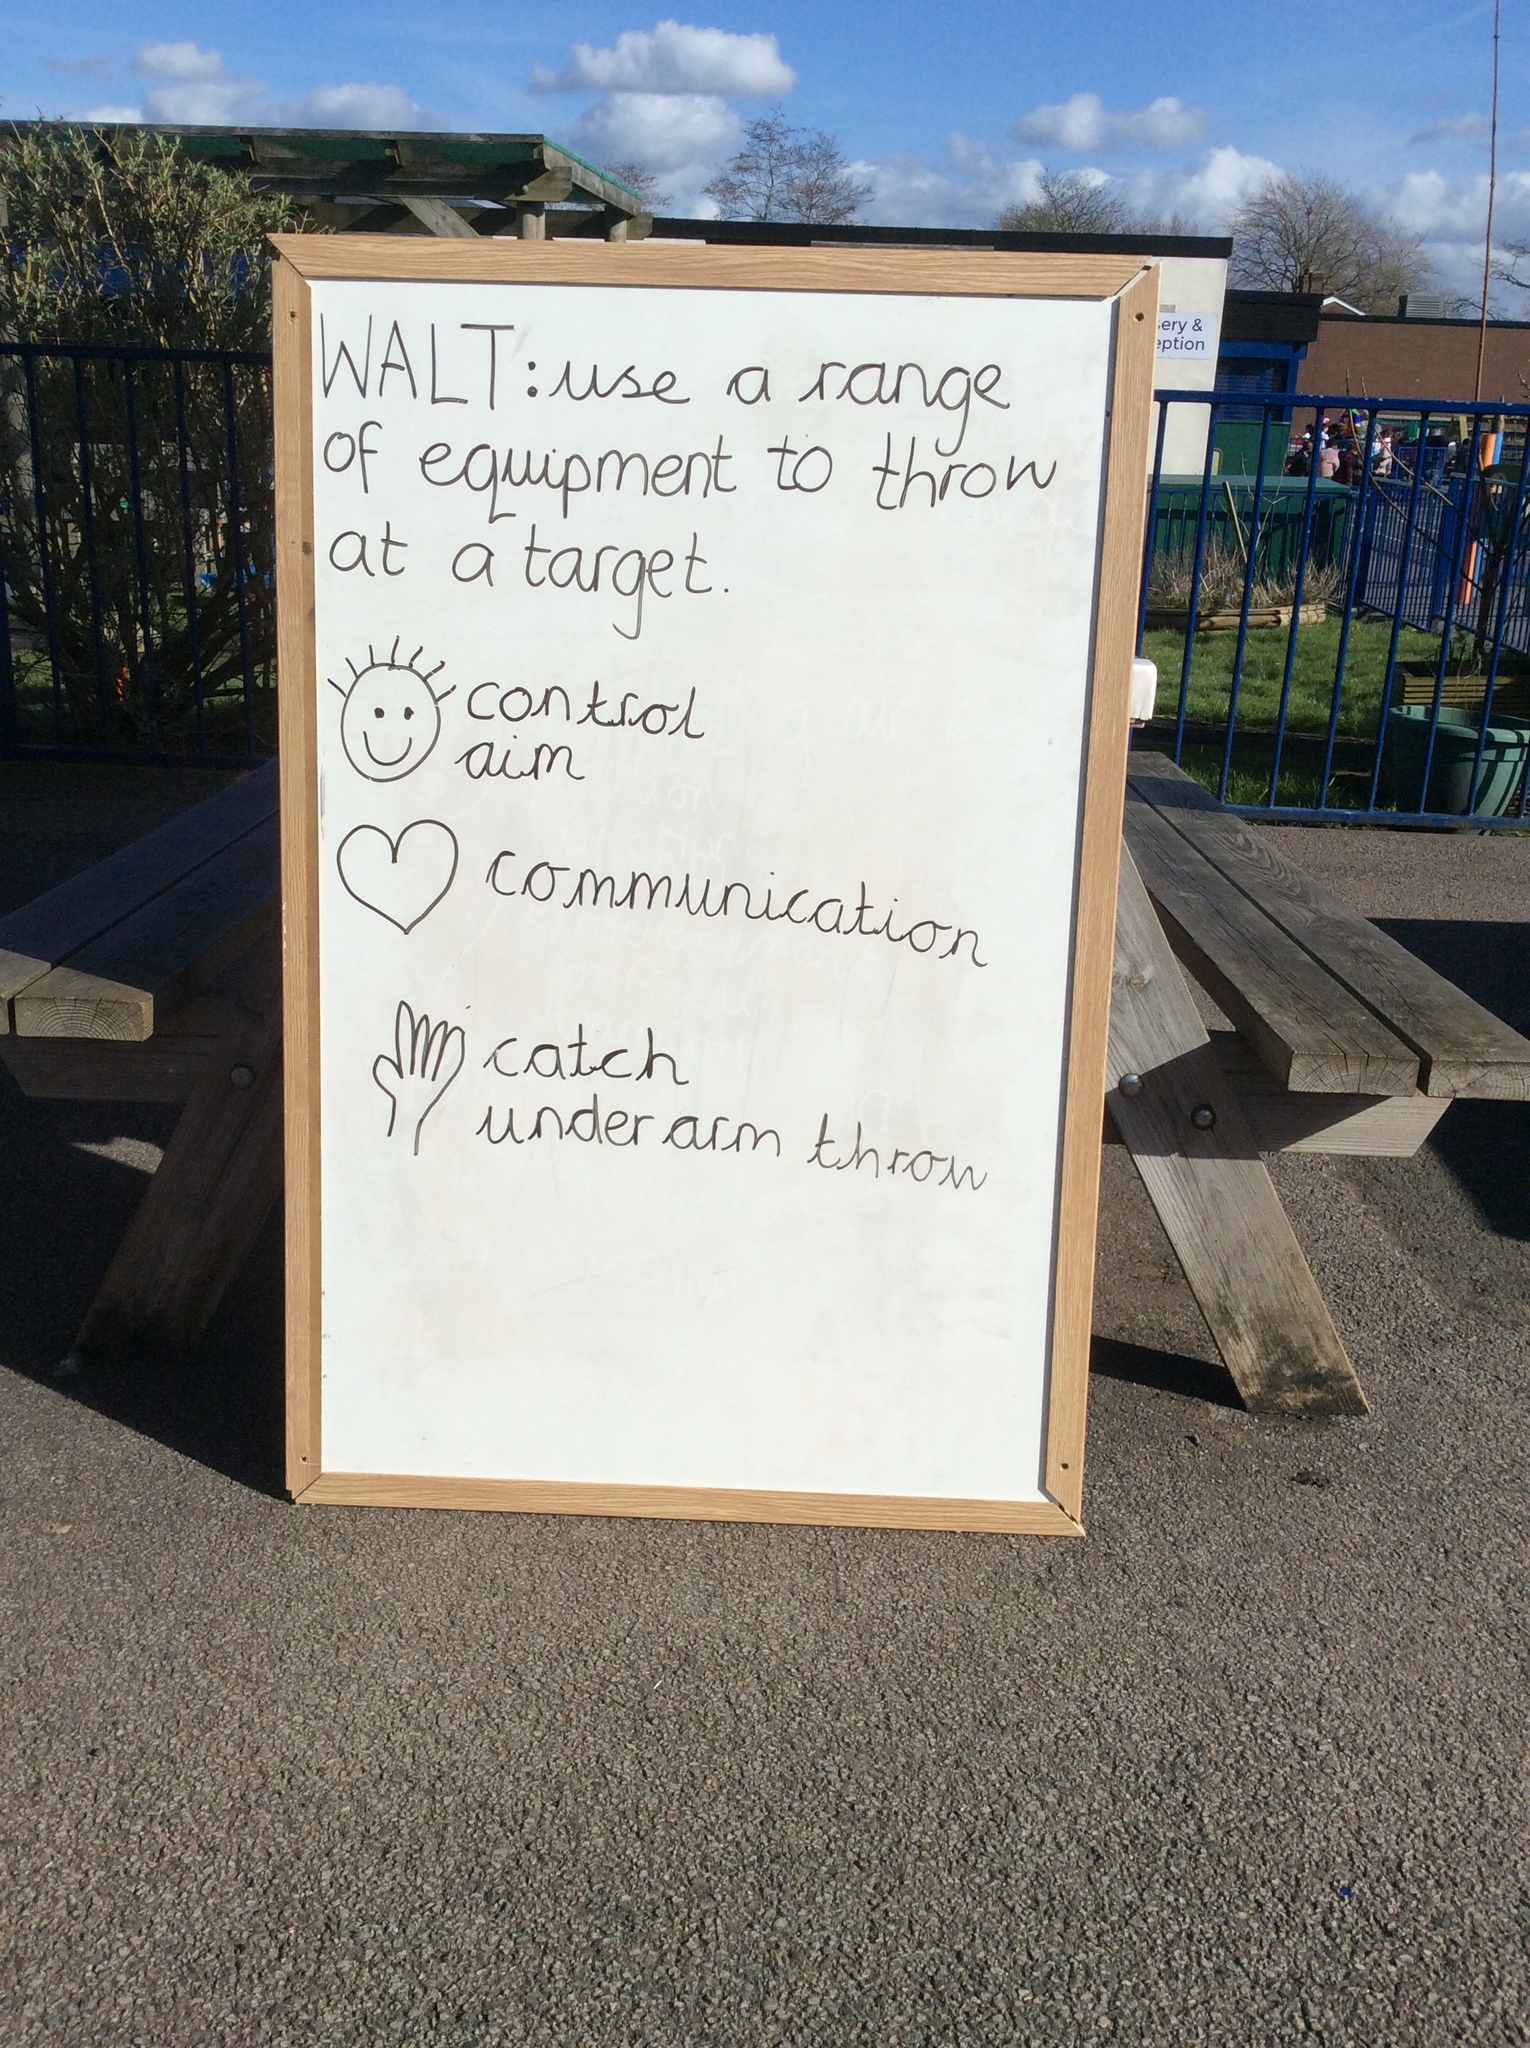 WALT: use a range
of equipment to throw
at a target.
control
aim
communication
catch
underarm throw
&